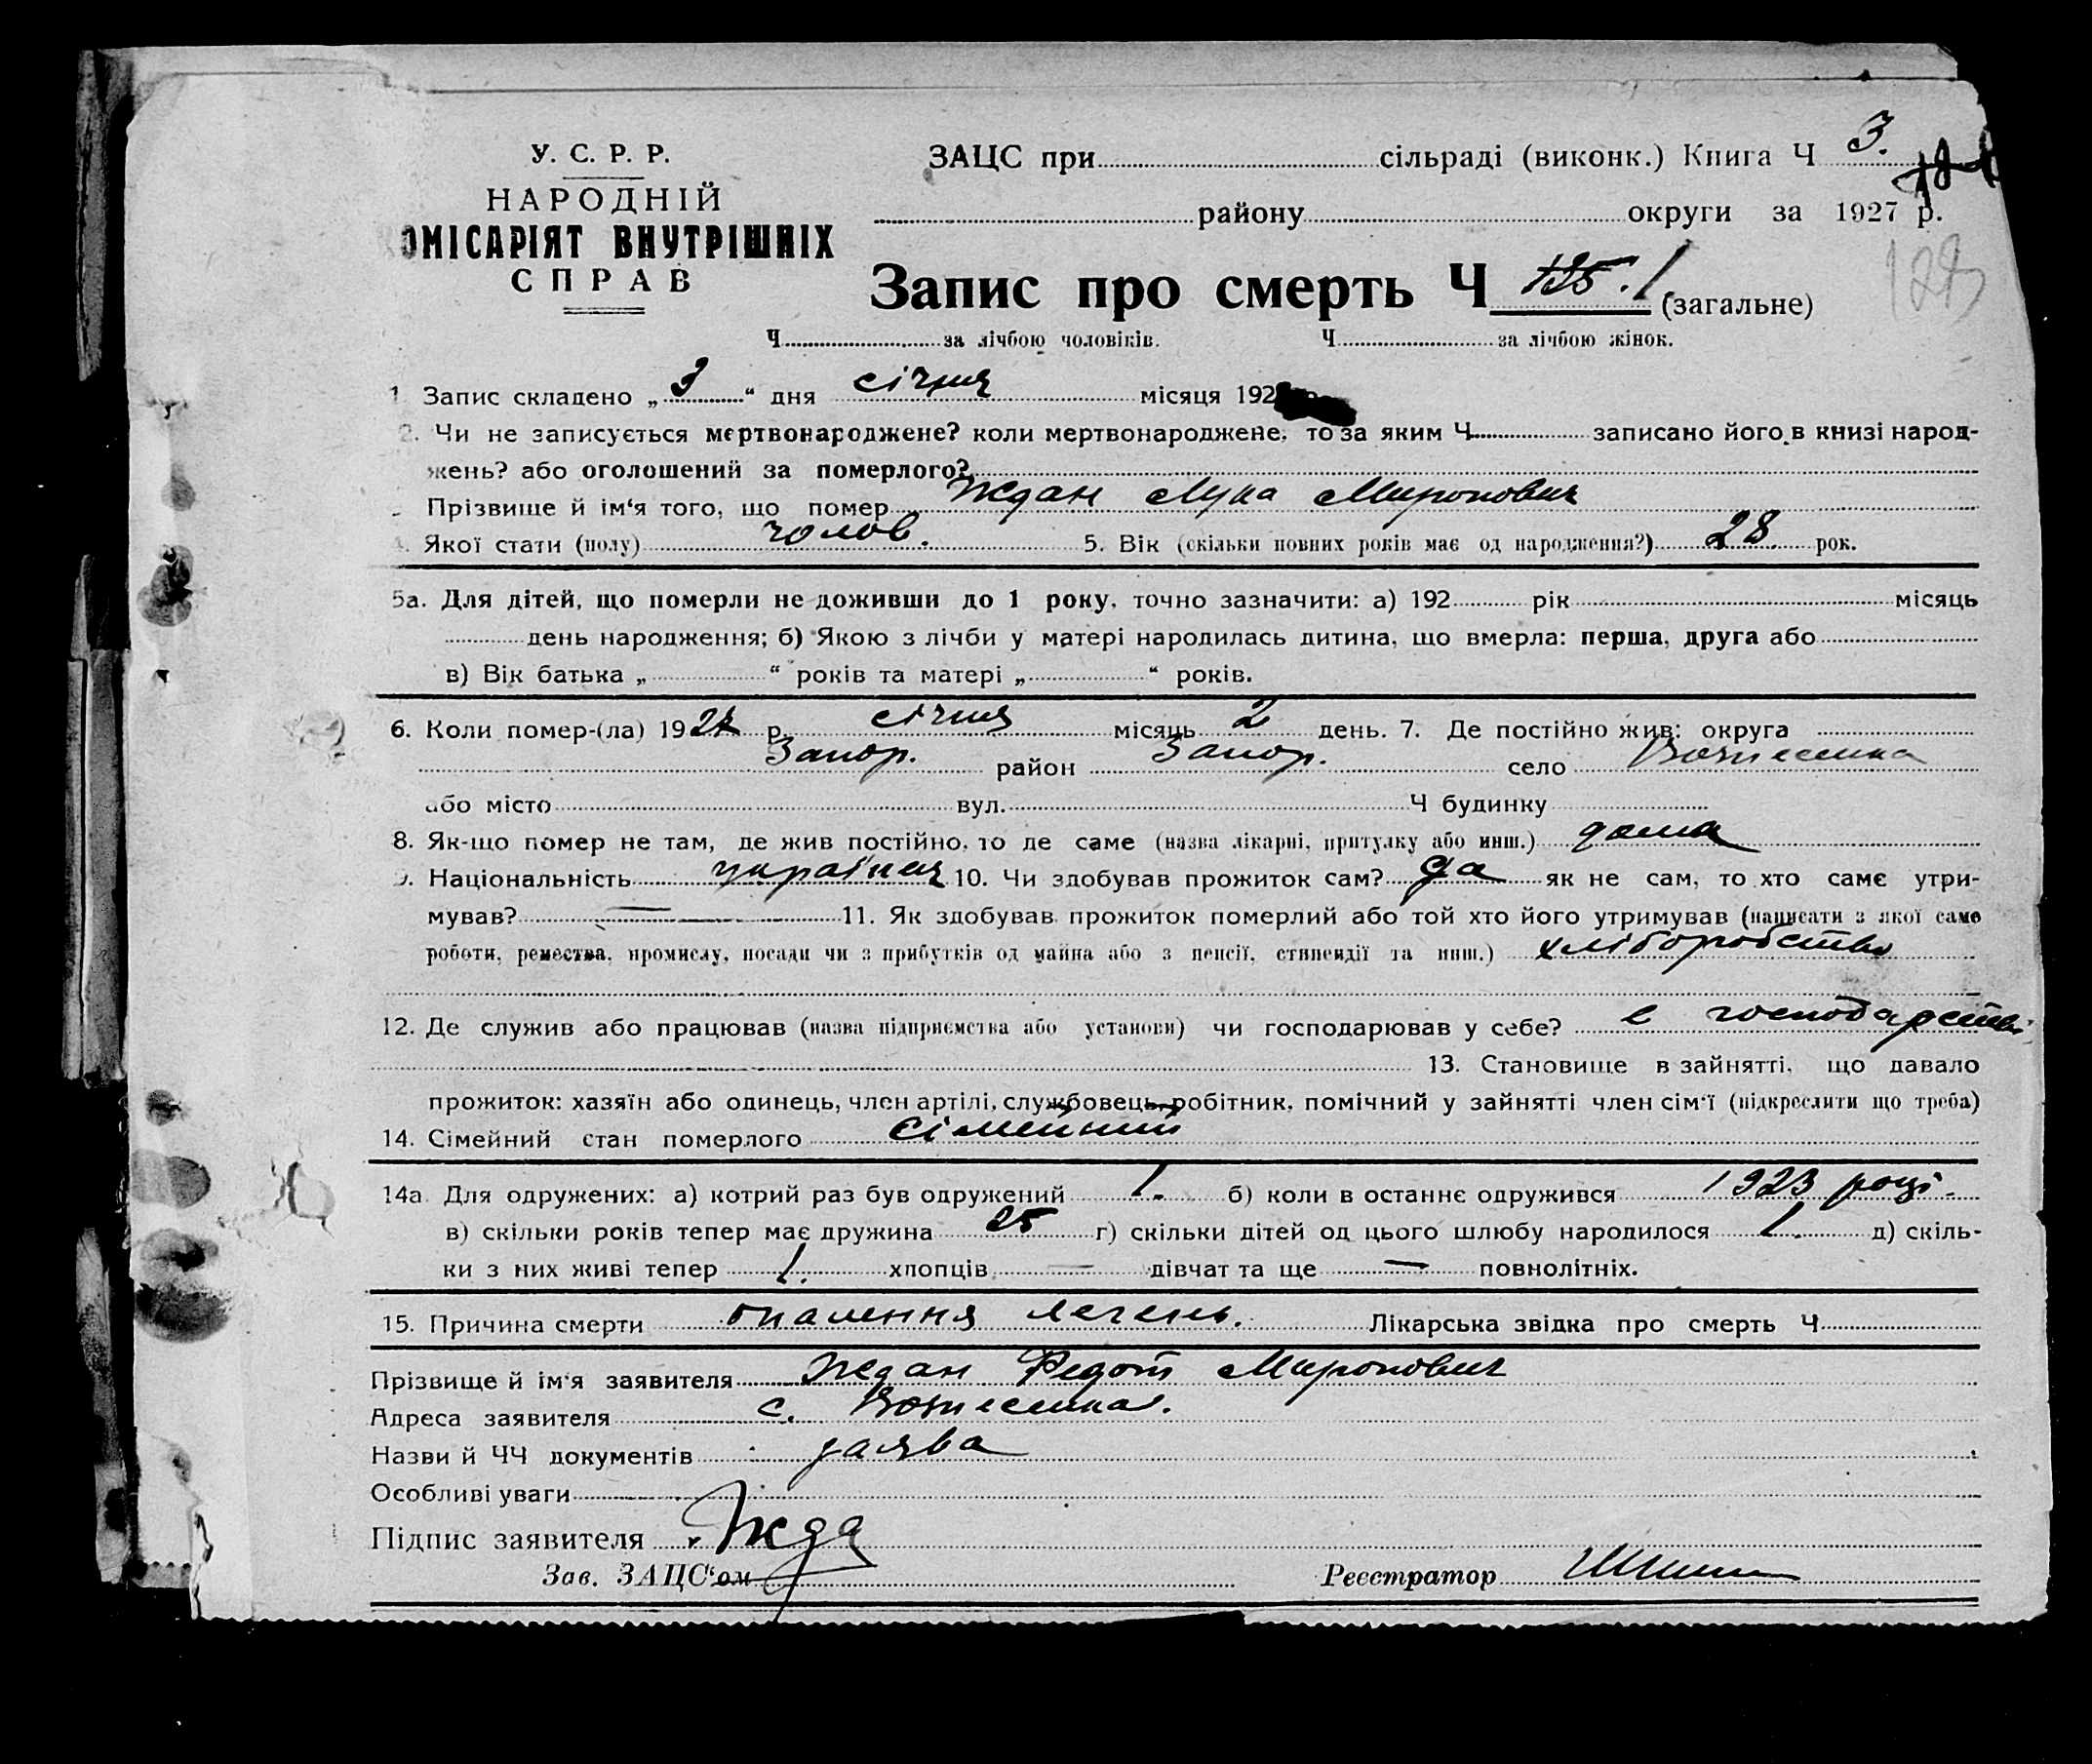 У. С. Р. Р.
НАРОДНІЙ
ОМІСАРІЯТ ВНУТРІШНІХ
СПРАВ
ЗАЦС при сільраді (виконк.) Книга Ч 3.
району округи за 1927 р.
Запис про смерть Ч 125. 1 (загальне)
128
Ч за лічбою чоловіків. Ч за лічбою жінок.
1. Запис складено „ 3 “ дня січня місяця 192
2. Чи не записується мертвонароджене? коли мертвонароджене, то за яким Ч записано його в книзі народ-
жень? або оголошений за померлого?
Прізвище й ім‘я того, що помер Ждан Лука Миронович
4. Якої стати (полу) чолов. 5. Вік (скільки повних років має од народження?) 28 рок.
5а. Для дітей, що померли не доживши до 1 року, точно зазначити: а) 192 рік місяць
день народження; б) Якою з лічби у матері народилась дитина, що вмерла: перша, друга або
в) Вік батька „ “ років та матері „ “ років.
6. Коли помер-(ла) 192 р. січня місяць 2 день. 7. Де постійно жив: округа
Запор. район Запор. село Вознесенка
або місто вул. Ч будинку
8. Як-що помер не там, де жив постійно, то де саме (назва лікарні, притулку або инш.) дома
9. Національність україн 10. Чи здобував прожиток сам? да як не сам, то хто саме утри-
мував? — 11. Як здобував прожиток померлий або той хто його утримував (написати з якої саме
роботи, ремества, промислу, посади чи з прибутків од майна або з пенсії, стипендії та инш.) хліборобство
12. Де служив або працював (назва підприємства або установи) чи господарював у себе? в господарстві
13. Становище в зайнятті, що давало
прожиток: хазяїн або одинець, член артілі, службовець, робітник, помічний у зайнятті член сім‘ї (підкреслити що треба)
14. Сімейний стан померлого сімейний
14а. Для одружених: а) котрий раз був одружений 1. б) коли в останнє одружився 1923 році.
в) скільки років тепер має дружина 25 г) скільки дітей од цього шлюбу народилося 1. д) скіль-
ки з них живі тепер 1. хлопців — дівчат та ще — повнолітніх.
15. Причина смерти опалення легень. Лікарська звідка про смерть Ч
Прізвище й ім‘я заявителя Ждан Федот Миронович
Адреса заявителя с. Вознесенка.
Назви й ЧЧ документів заява
Особливі уваги
Підпис заявителя Жда
Зав. ЗАЦС‘ом Реєстратор